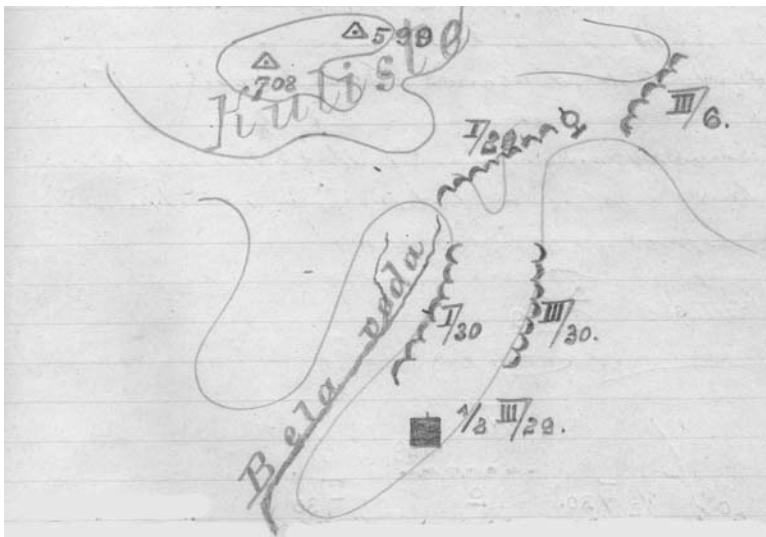 599
708
Kulište
I/29
III/6.
Bela voda
I/30
III/30.
1/2 III/29.